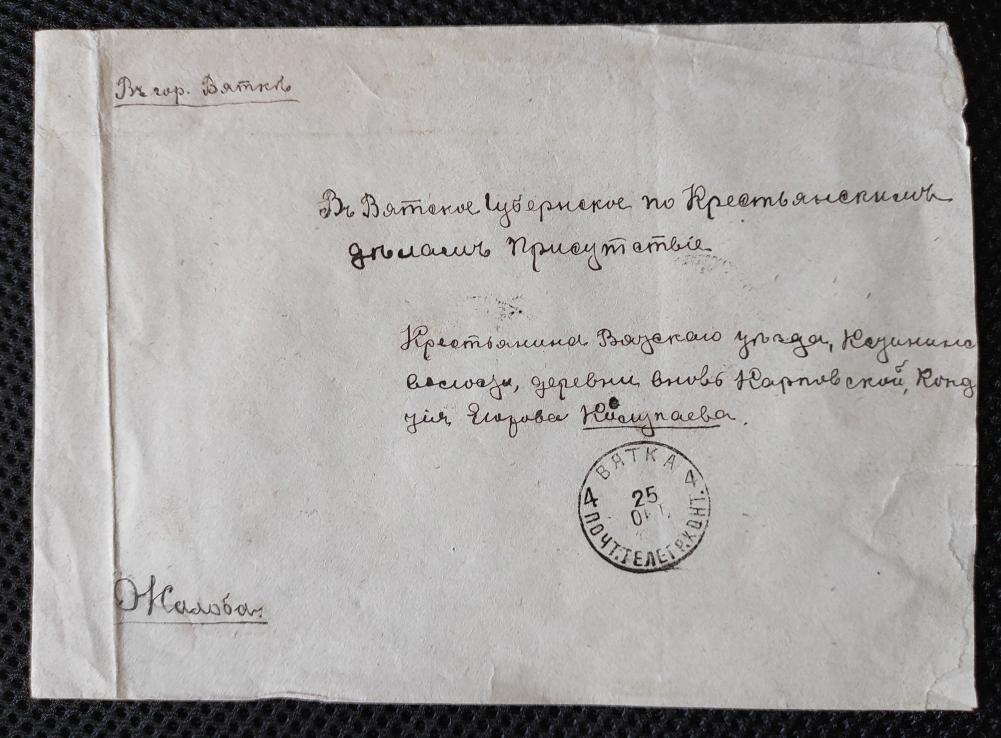 Въ гор. Вяткѣ
Въ Вятское Губернское по Крестьянскимъ
дѣламъ Присутствіе
Крестьянина Вятскаго уѣзда,
волости, деревни вновь Карповской, Конд
Егорова
ВЯТКА
4 4
25
ОКТ.
ПОЧТ.ТЕЛЕГР.КОНТ.
Жалоба.